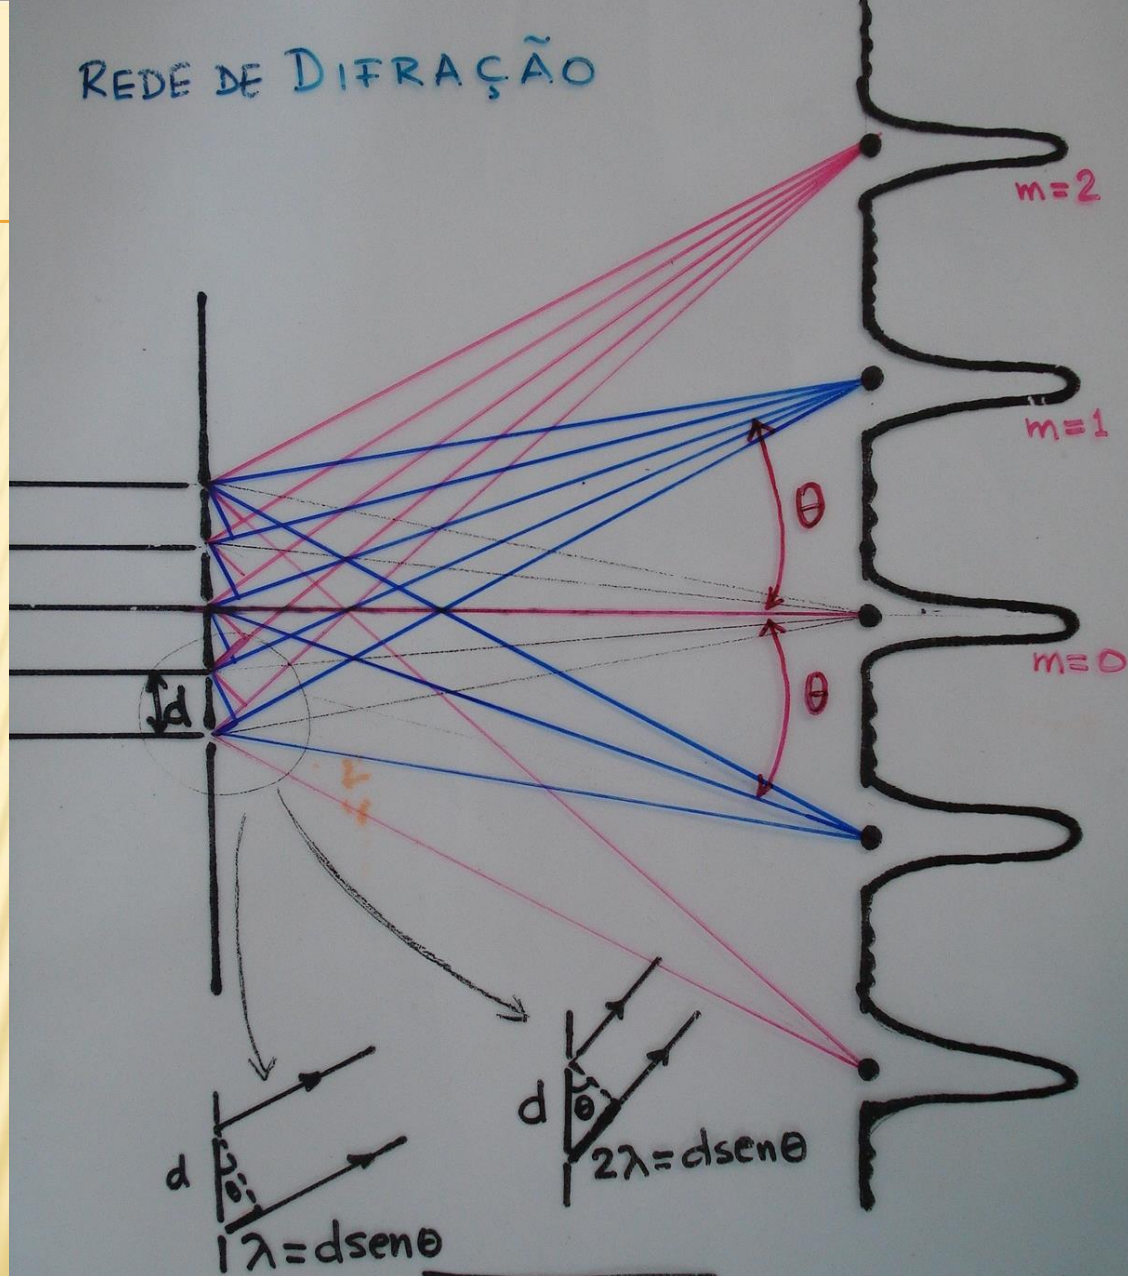 REDE DE DIFRAÇÃO
m=2
m=1
θ
m=0
θ
d
d
θ
1λ=dsenθ
d
θ
2λ=dsenθ